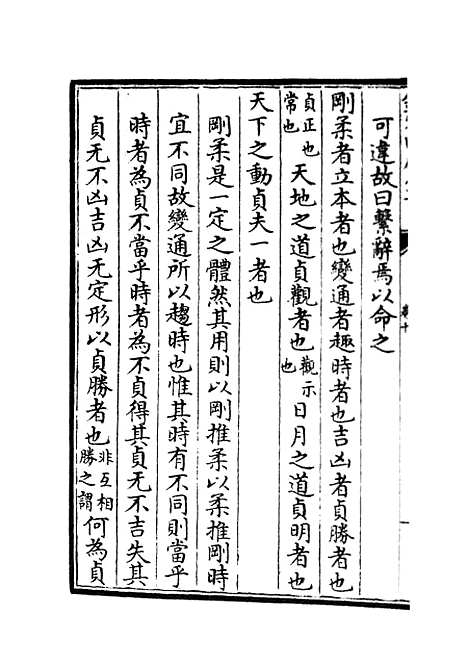 可違故曰繫辭焉以命之
剛柔者立本者也變通者趣時者也吉凶者貞勝者也
貞正也常也天地之道貞觀者也觀示也日月之道貞明者也
天下之動貞夫一者也
剛柔是一定之體然其用則以剛推柔以柔推剛時
宜不同故變通所以趨時也惟其時有不同則當乎
時者為貞不當乎時者為不貞得其貞无不吉失其
貞无不凶吉凶无定形以貞勝者也非互相勝之謂何為貞